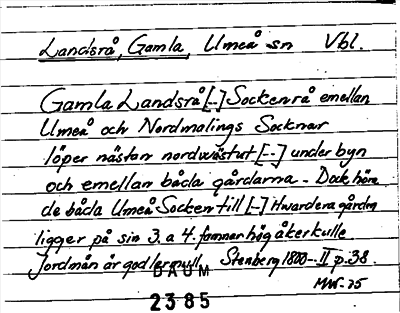 Landsrå, Gamla, Umeå sn Vbl.
Gamla Landsrå [--] Sockenrå emellan
Umeå och Nordmalings Socknar
löper nästan nordwästut [--] under byn
och emellan båda gårdarna - Dock höra
de båda Umeå Socken till [--] Hwardera gården
ligger på sin 3. a 4. famnar hög åkerkulle
Jordmån är god lermull Stenberg 1800-- II p.38.
MW-75
DAUM
2385